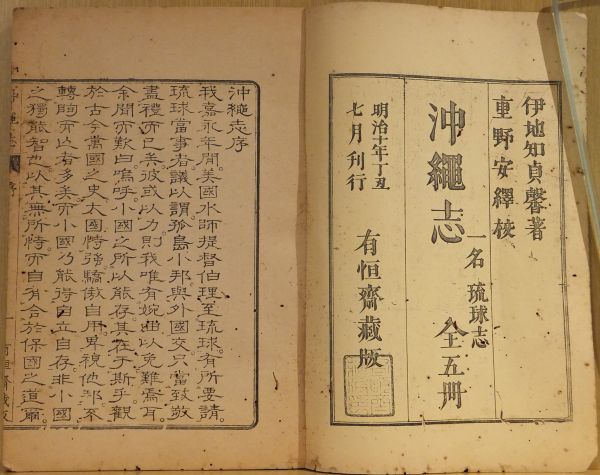 伊地知貞馨著
重野安繹校
沖繩志
一名 琉球志
全五冊
明治十年丁丑
七月刊行
有恒齋藏版
沖繩志序
我嘉永年間美國水師提督伯理至琉球有所要請。
琉球當事者議以謂孤島小邦與外國交只當致敬
盡禮而已矣彼或以力則我唯有婉曲以免難焉耳。
余聞而歎曰嗚呼小國之所以能存其在于斯乎觀
於古今萬國之史大國恃強驕傲自用卑視他邦不
轉眴而亾者多矣而小國乃能得自立自存非小國
之獨能智也以其無所恃而自有合於保國之道爾